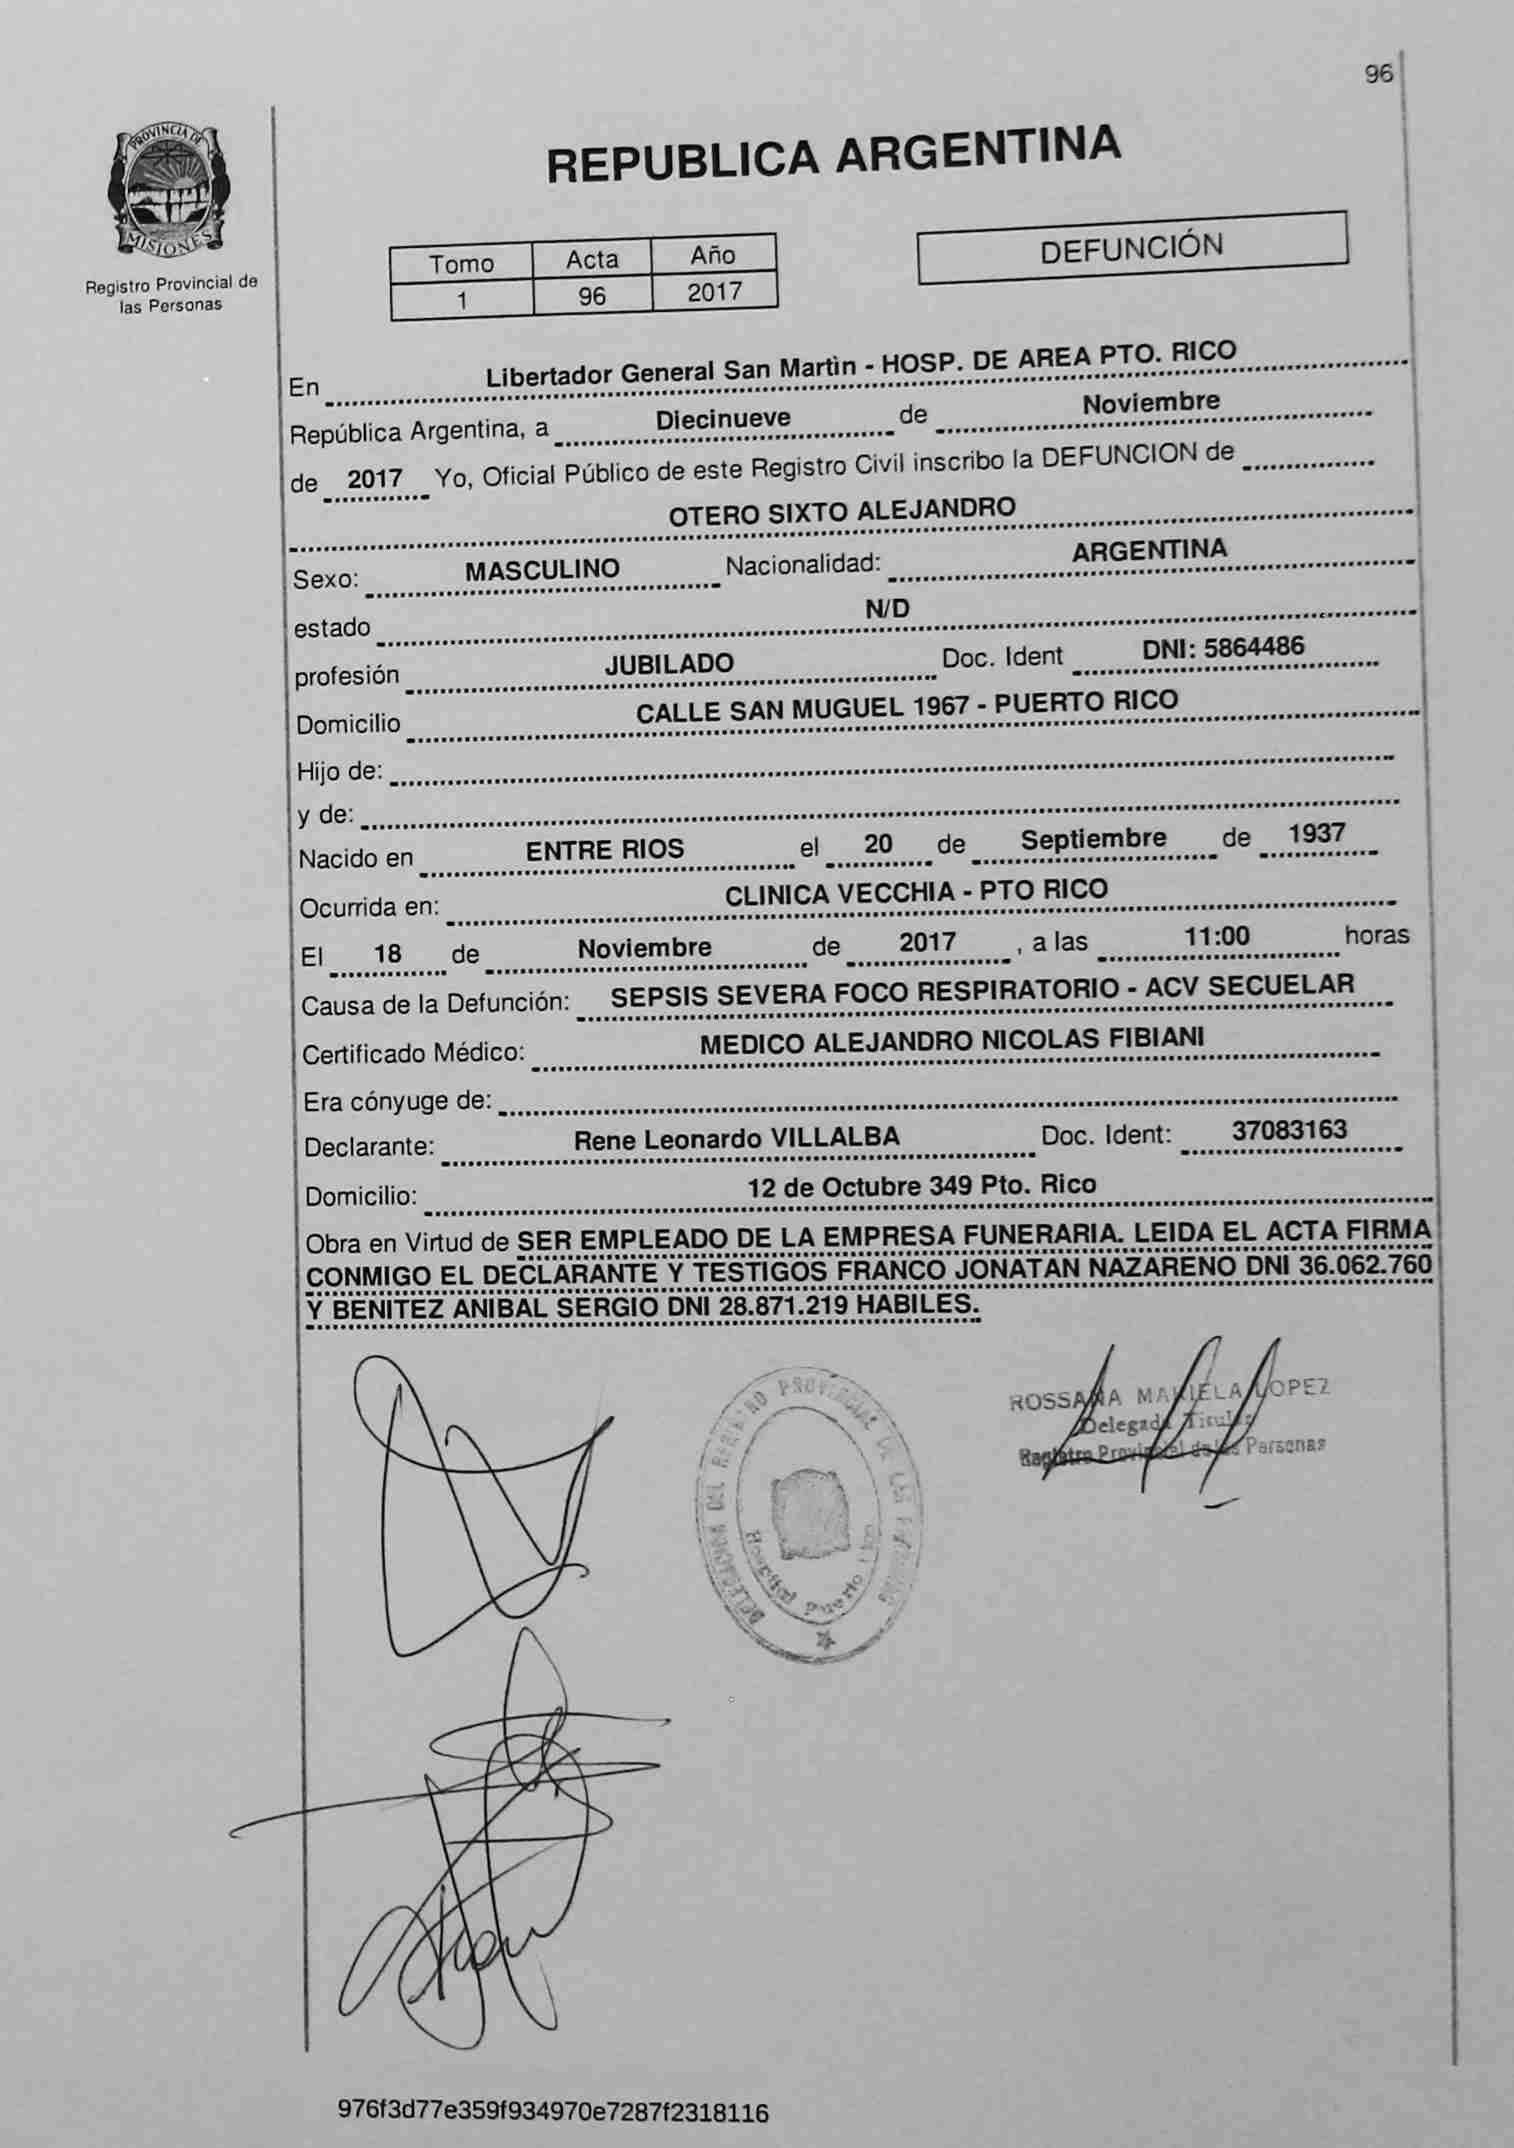 96
PROVINCIA DE
MISIONES
Registro Provincial de
las Personas
REPUBLICA ARGENTINA
Tomo Acta Año
1 96 2017
DEFUNCIÓN
En Libertador General San Martìn - HOSP. DE AREA PTO. RICO
República Argentina, a Diecinueve de Noviembre
de 2017 Yo, Oficial Público de este Registro Civil inscribo la DEFUNCION de
OTERO SIXTO ALEJANDRO
Sexo: MASCULINO Nacionalidad: ARGENTINA
estado N/D
profesión JUBILADO Doc. Ident DNI: 5864486
Domicilio CALLE SAN MUGUEL 1967 - PUERTO RICO
Hijo de:
y de:
Nacido en ENTRE RIOS el 20 de Septiembre de 1937
Ocurrida en: CLINICA VECCHIA - PTO RICO
El 18 de Noviembre de 2017 , a las 11:00 horas
Causa de la Defunción: SEPSIS SEVERA FOCO RESPIRATORIO - ACV SECUELAR
Certificado Médico: MEDICO ALEJANDRO NICOLAS FIBIANI
Era cónyuge de:
Declarante: Rene Leonardo VILLALBA Doc. Ident: 37083163
Domicilio: 12 de Octubre 349 Pto. Rico
Obra en Virtud de SER EMPLEADO DE LA EMPRESA FUNERARIA. LEIDA EL ACTA FIRMA
CONMIGO EL DECLARANTE Y TESTIGOS FRANCO JONATAN NAZARENO DNI 36.062.760
Y BENITEZ ANIBAL SERGIO DNI 28.871.219 HABILES.
DELEGACION DEL REGISTRO PROVINCIAL DE LAS PERSONAS
Hospital Puerto Rico
ROSSANA MARIELA LOPEZ
Delegada Titular
Registro Provincial de las Personas
976f3d77e359f934970e7287f2318116